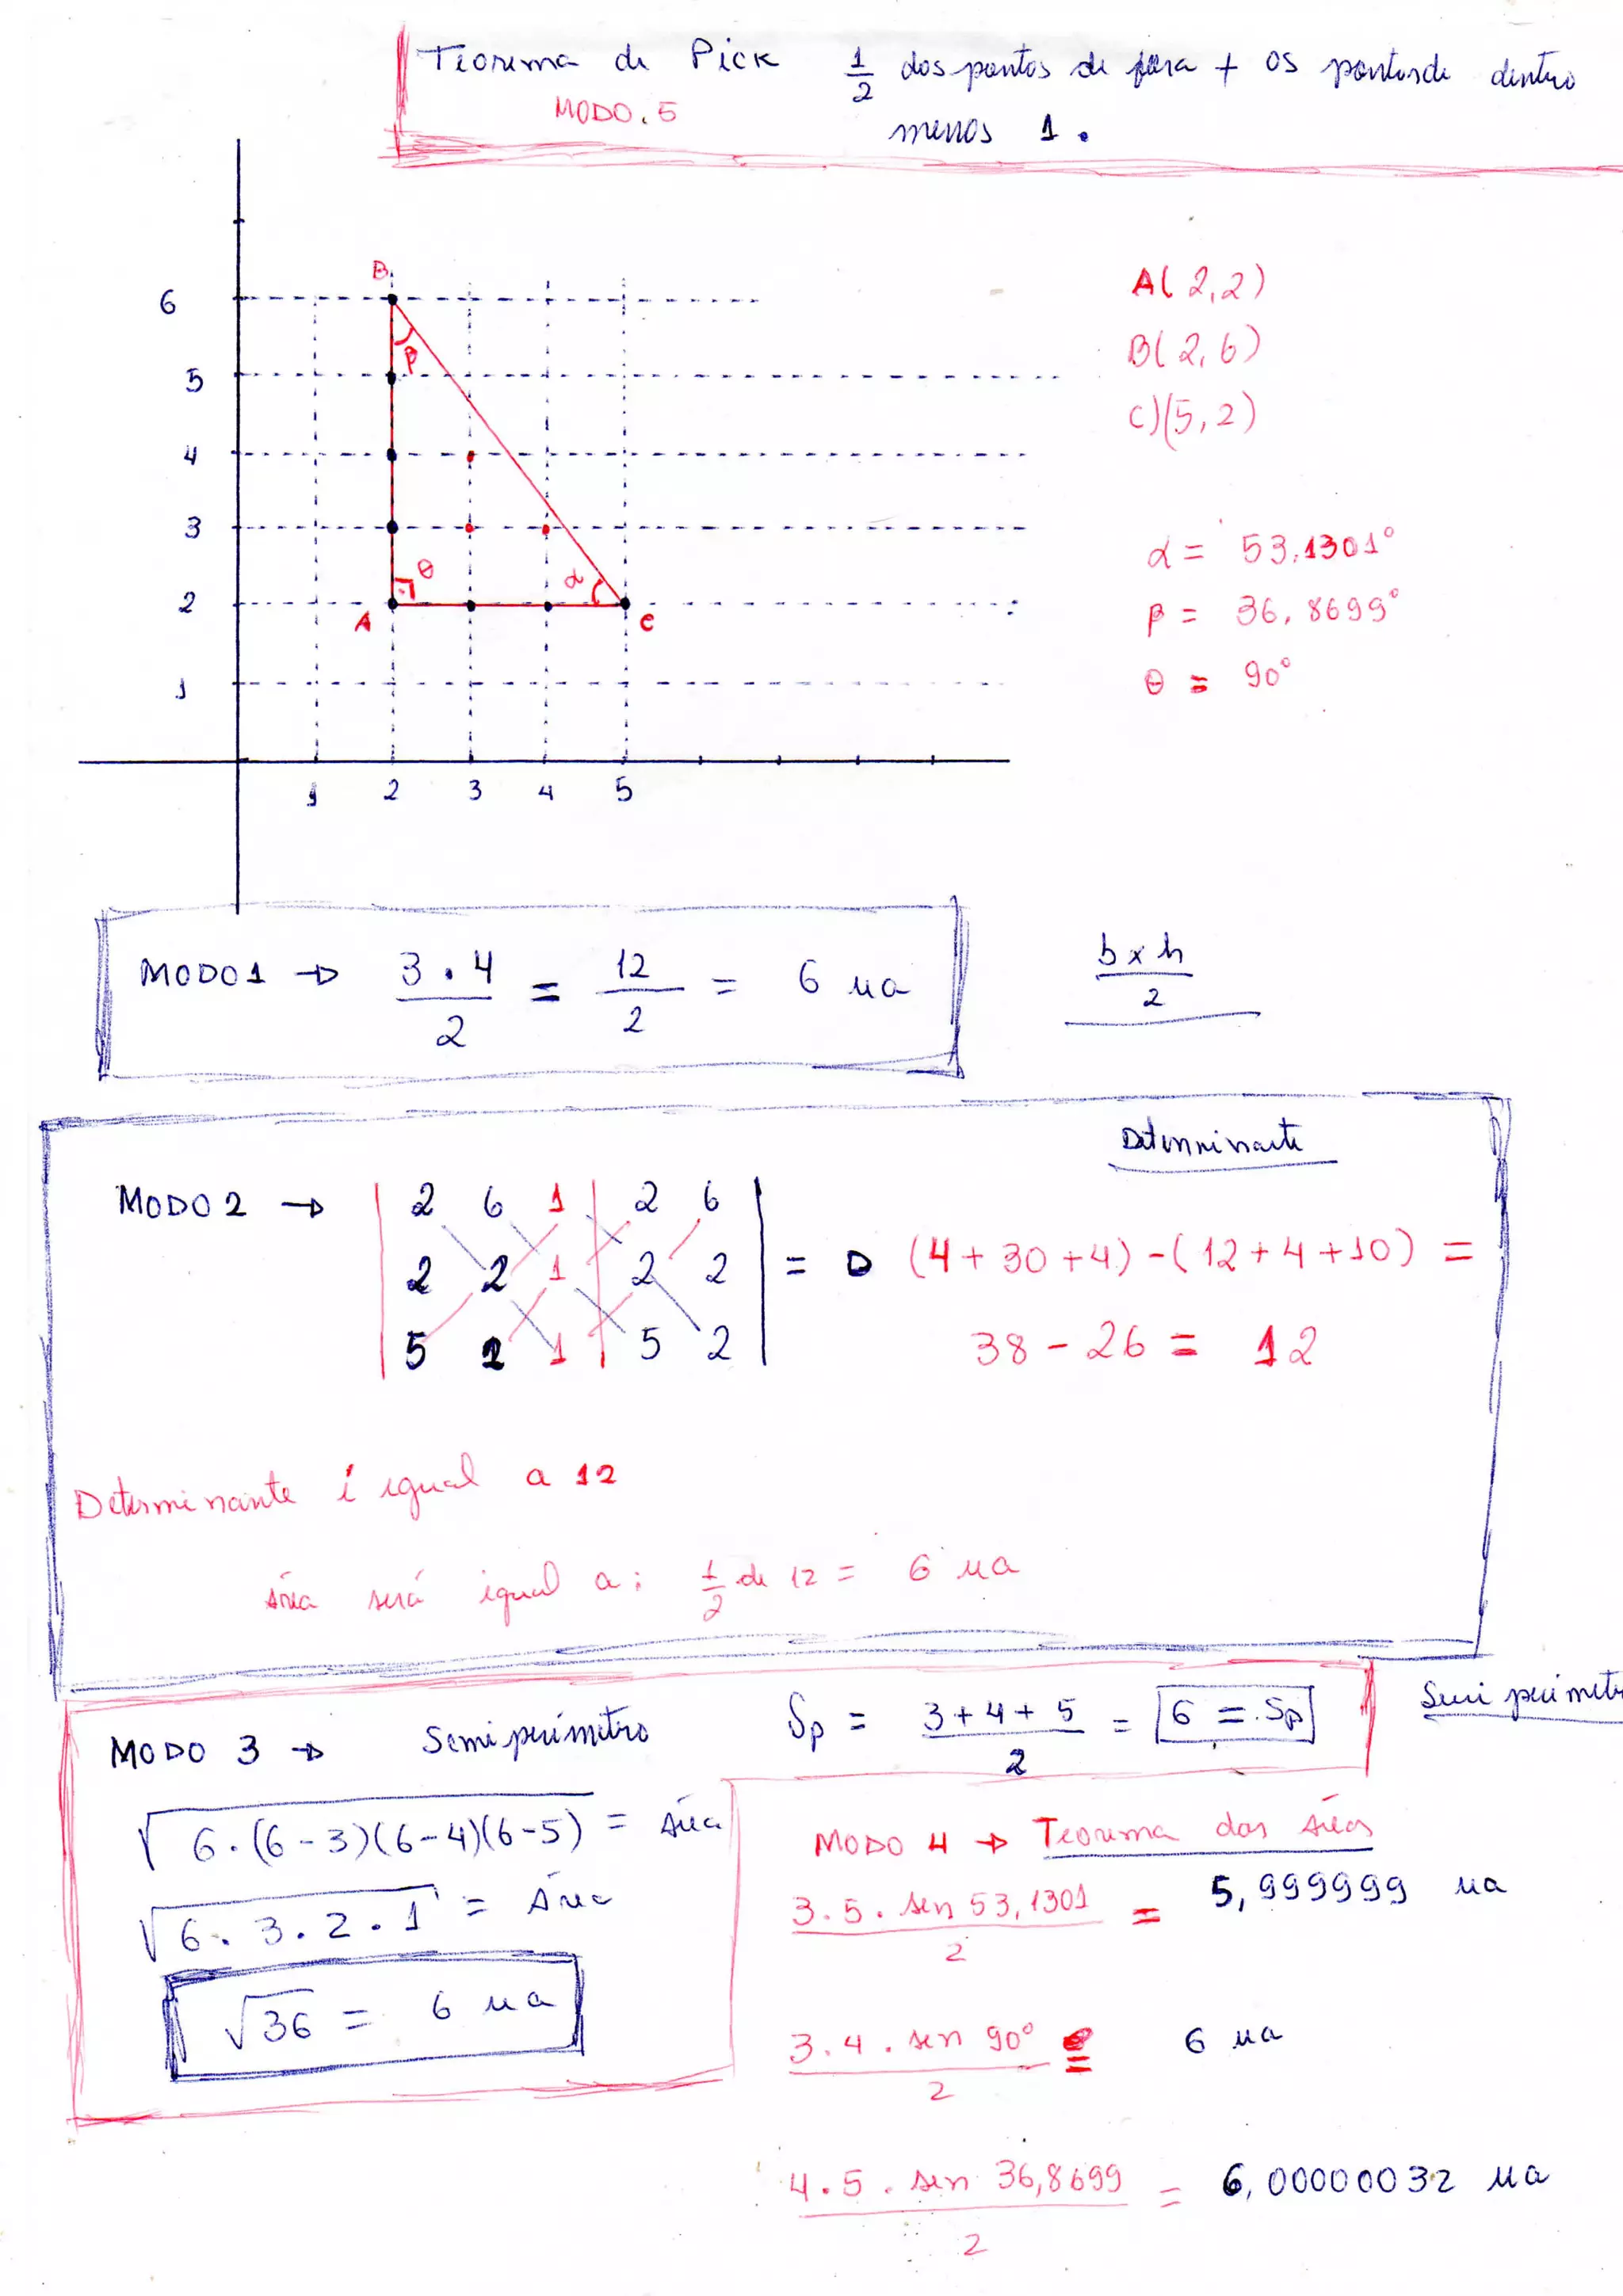 Teorema de Pick 1/2 dos pontos de fora + os pontos de dentro
MODO. 5
menos 1.
B
6
β
5
4
3
θ
α
2
A
C
1
1 2 3 4 5
A( 2,2)
B( 2,6)
C)(5,2)
α = 53,1301°
β = 36,8699°
θ = 90°
MODO1 → 3 . 4 / 2 = 12 / 2 = 6 ua
b x h / 2
Determinante
MODO2 → | 2 6 1 | 2 6 |
2 2 1 | 2 2 | = (4+30+4)-(12+4+10) =
5 2 1 | 5 2 |
38 - 26 = 12
Determinante é igual a 12
Área será igual a: 1/2 de 12 = 6 ua
MODO 3 → Semiperímetro
Sp = 3+4+5 / 2 = 6 = Sp
√6.(6-3)(6-4)(6-5) = Área
√6. 3. 2. 1 = Área
√36 = 6 ua
MODO 4 → Teorema das Áreas
3.5. sen 53,1301 / 2 = 5,999999 ua
3.4. sen 90° / 2 = 6 ua
4.5. sen 36,8699 / 2 = 6,00000032 ua